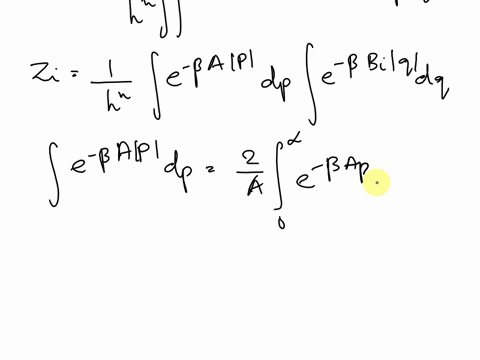 hⁿ ∫∫
Zi = 1/hⁿ ∫ e^{-βA|P|} dp ∫ e^{-βBi|q|} dq
∫ e^{-βA|P|} dp = 2/A ∫₀^α e^{-βAp}